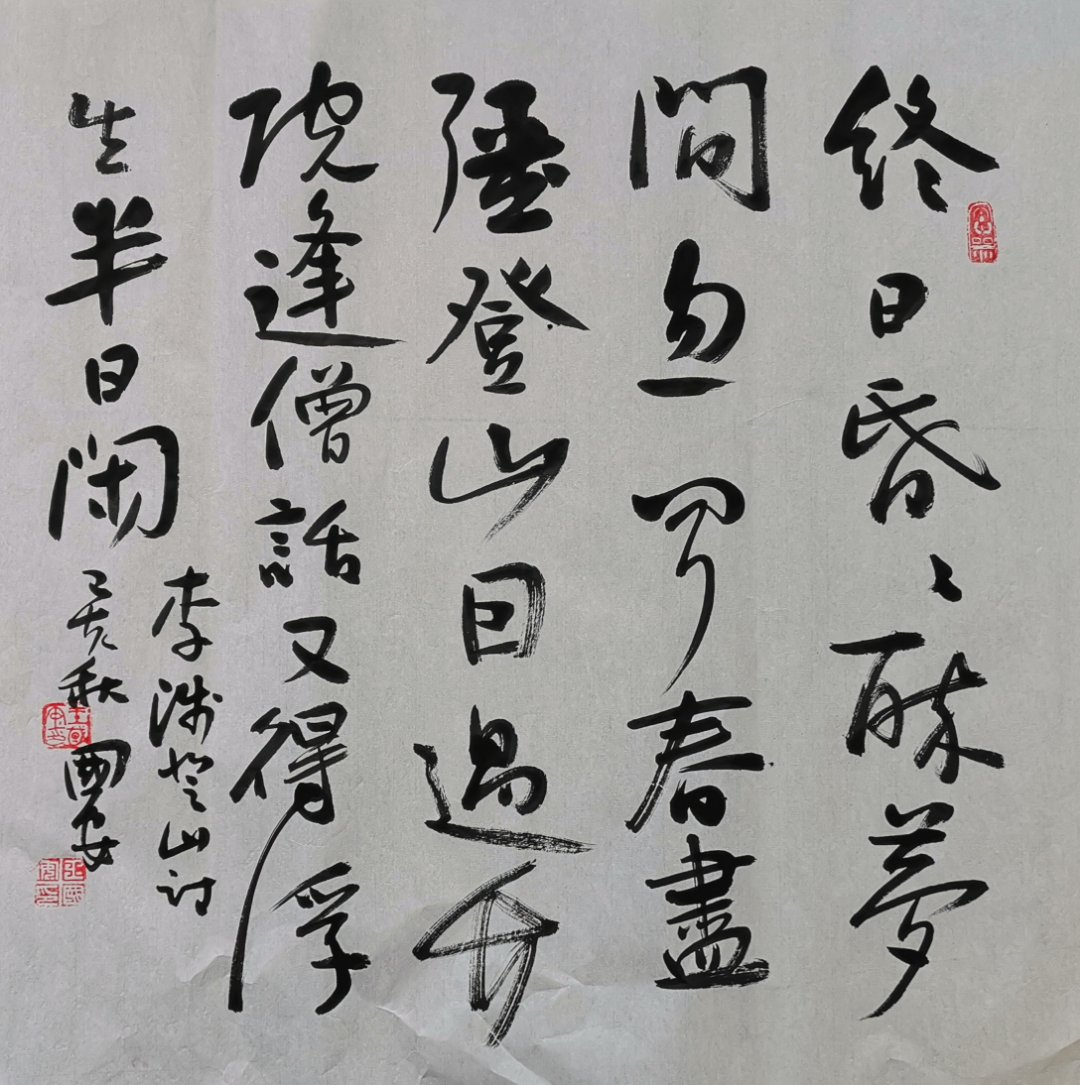 終日昏々醉夢
間忽聞春盡
彊登山因過竹
院逢僧話又得浮
生半日閑
李涉登山诗
己亥秋 國安